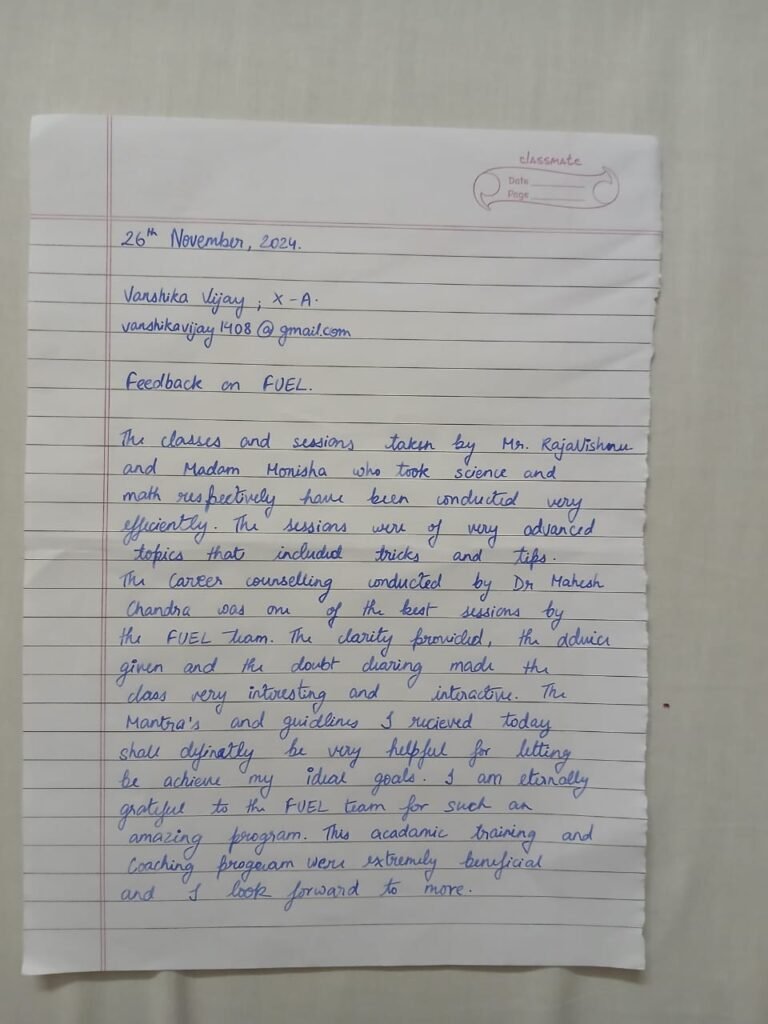 classmate
Date
Page
26th November, 2024.
Vanshika Vijay ; X-A.
vanshikavijay1408@gmail.com
Feedback on FUEL.
The classes and sessions taken by Mr. RajaVishnu
and Madam Monisha who took science and
math respectively have been conducted very
efficiently. The sessions were of very advanced
topics that included tricks and tips.
The Career counselling conducted by Dr Mahesh
Chandra was one of the best sessions by
the FUEL team. The clarity provided, the advice
given and the doubt clearing made the
class very intresting and interactive. The
Mantra's and guidlines I recieved today
shall dyfinatly be very helpful for letting
be achieve my ideal goals. I am eternally
grateful to the FUEL team for such an
amazing program. This acadamic training and
Coaching program were extremely beneficial
and I look forward to more.